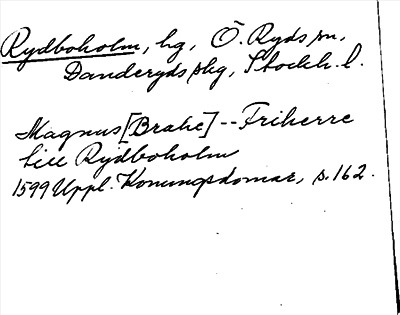 Rydboholm, hg, Ö. Ryds sn,
Danderyds skg, Stockh. l.
Magnus [Brahe] -- Friherre
till Rydboholm
1599 Uppl. Konungsdomar, s. 162.